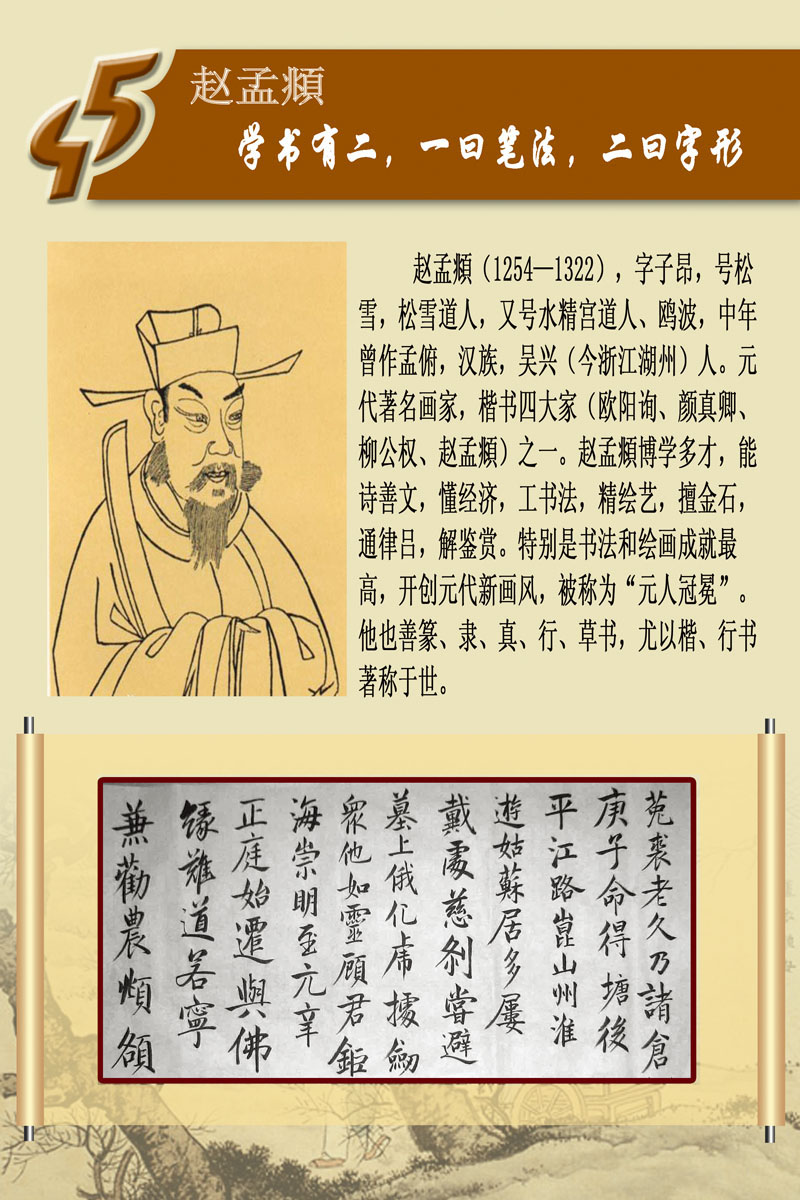 45
赵孟頫
学书有二，一曰笔法，二曰字形
赵孟頫（1254—1322），字子昂，号松
雪，松雪道人，又号水精宫道人、鸥波，中年
曾作孟俯，汉族，吴兴（今浙江湖州）人。元
代著名画家，楷书四大家（欧阳询、颜真卿、
柳公权、赵孟頫）之一。赵孟頫博学多才，能
诗善文，懂经济，工书法，精绘艺，擅金石，
通律吕，解鉴赏。特别是书法和绘画成就最
高，开创元代新画风，被称为“元人冠冕”。
他也善篆、隶、真、行、草书，尤以楷、行书
著称于世。
菟裘老久乃諸倉
庚子命得塘後
平江路崑山州淮
遊姑蘇居多屢
戴處慈剎嘗避
墓上俄化虎據
眾他如靈顧君鉅
海崇明至元辛
正庭始遷與佛
緣難道若寧
兼勸農